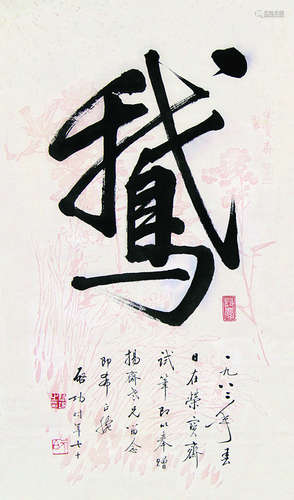 鵝
一九八二年
日在榮寶齋
試筆即以奉贈
揚齋兄留念
即希正
啟功時年七十